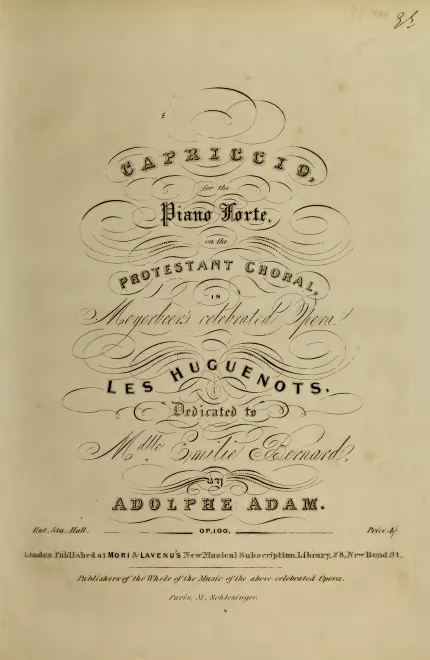 CAPRICCIO,
for the
Piano Forte,
on the
PROTESTANT CHORAL,
IN
Meyerbeer's celebrated Opera.
LES HUGUENOTS.
"Dedicated to"
Mdlle Emilie Bernard,
BY
ADOLPHE ADAM.
Ent. Sta. Hall. OP. 100. Price 4/
London, Published at MORI & LAVENU'S New Musical Subscription Library, 28, New Bond St.
Publishers of the Whole of the Music of the above celebrated Opera.
Paris, M. Schlesinger.